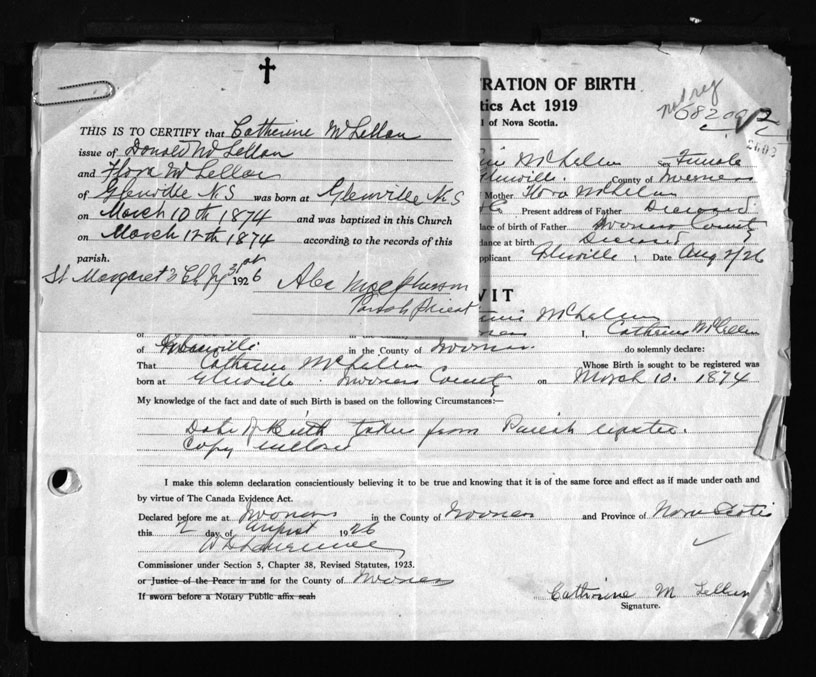 THIS IS TO CERTIFY that Catherine McLellan
issue of Donald McLellan
and Flora McLellan
of Glenville N.S was born at Glenville N.S
on March 10th 1874 and was baptized in this Church
on March 12th 1874 according to the records of this
parish.
St Margaret's 31st 1926
Alex Macpherson
Parish Priest
RATION OF BIRTH
tics Act 1919
l of Nova Scotia.
not reg
68209
McLellan Sex Female
Glenville. County of Inverness
Mother Flora McLellan
Present address of Father Deceased
lace of birth of Father Inverness County
dance at birth Deceased
pplicant Glenville Date Aug 2/26
VIT
McLellan
I, Catherine McLellan
of in the County of Inverness do solemnly declare:
That Catherine McLellan Whose Birth is sought to be registered was
born at Glenville Inverness County on March 10. 1874
My knowledge of the fact and date of such Birth is based on the following Circumstances:—
Date of Birth taken from Parish register.
Copy enclosed
I make this solemn declaration conscientiously believing it to be true and knowing that it is of the same force and effect as if made under oath and
by virtue of The Canada Evidence Act.
Declared before me at Inverness in the County of Inverness and Province of Nova Scotia
this 2 day of august 1926
Commissioner under Section 5, Chapter 38, Revised Statutes, 1923.
or Justice of the Peace in and for the County of Inverness
If sworn before a Notary Public affix seal
Catherine McLellan
Signature.